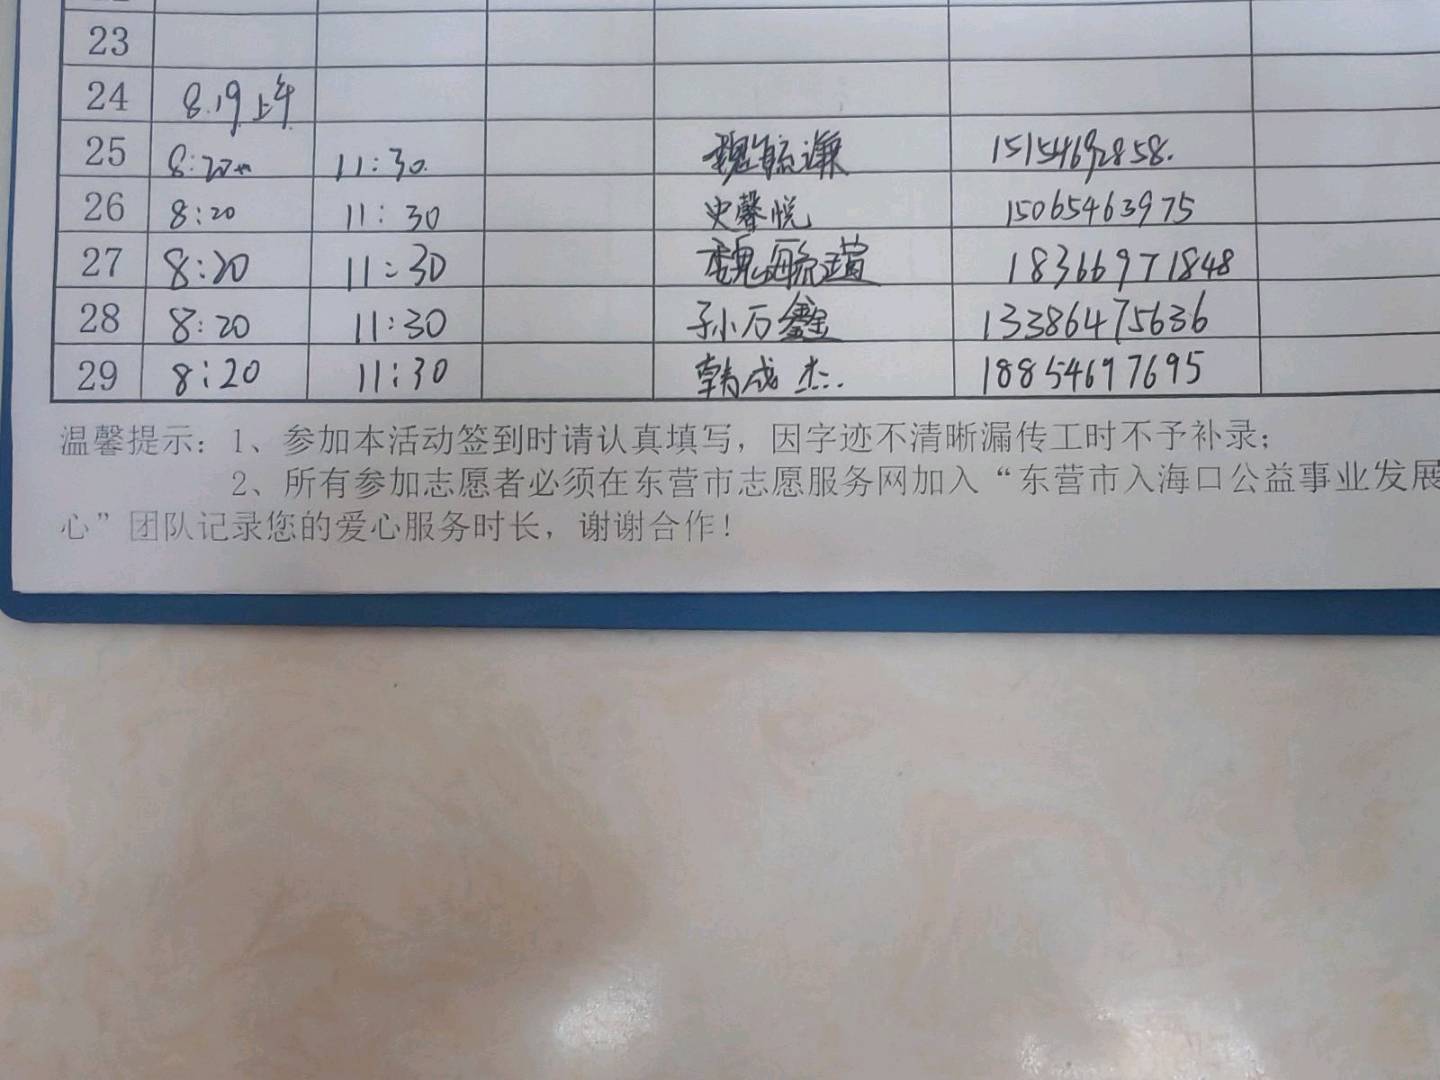 23
24 8.19上午
25 8:20 11:30. 魏毓谦 15154692858.
26 8:20 11:30 史馨悦 15065463975
27 8:20 11:30 魏毓萱 18366971848
28 8:20 11:30 孙万鑫 13386475636
29 8:20 11:30 韩成杰. 18854697695
温馨提示：1、参加本活动签到时请认真填写，因字迹不清晰漏传工时不予补录；
2、所有参加志愿者必须在东营市志愿服务网加入“东营市入海口公益事业发展
心”团队记录您的爱心服务时长，谢谢合作！